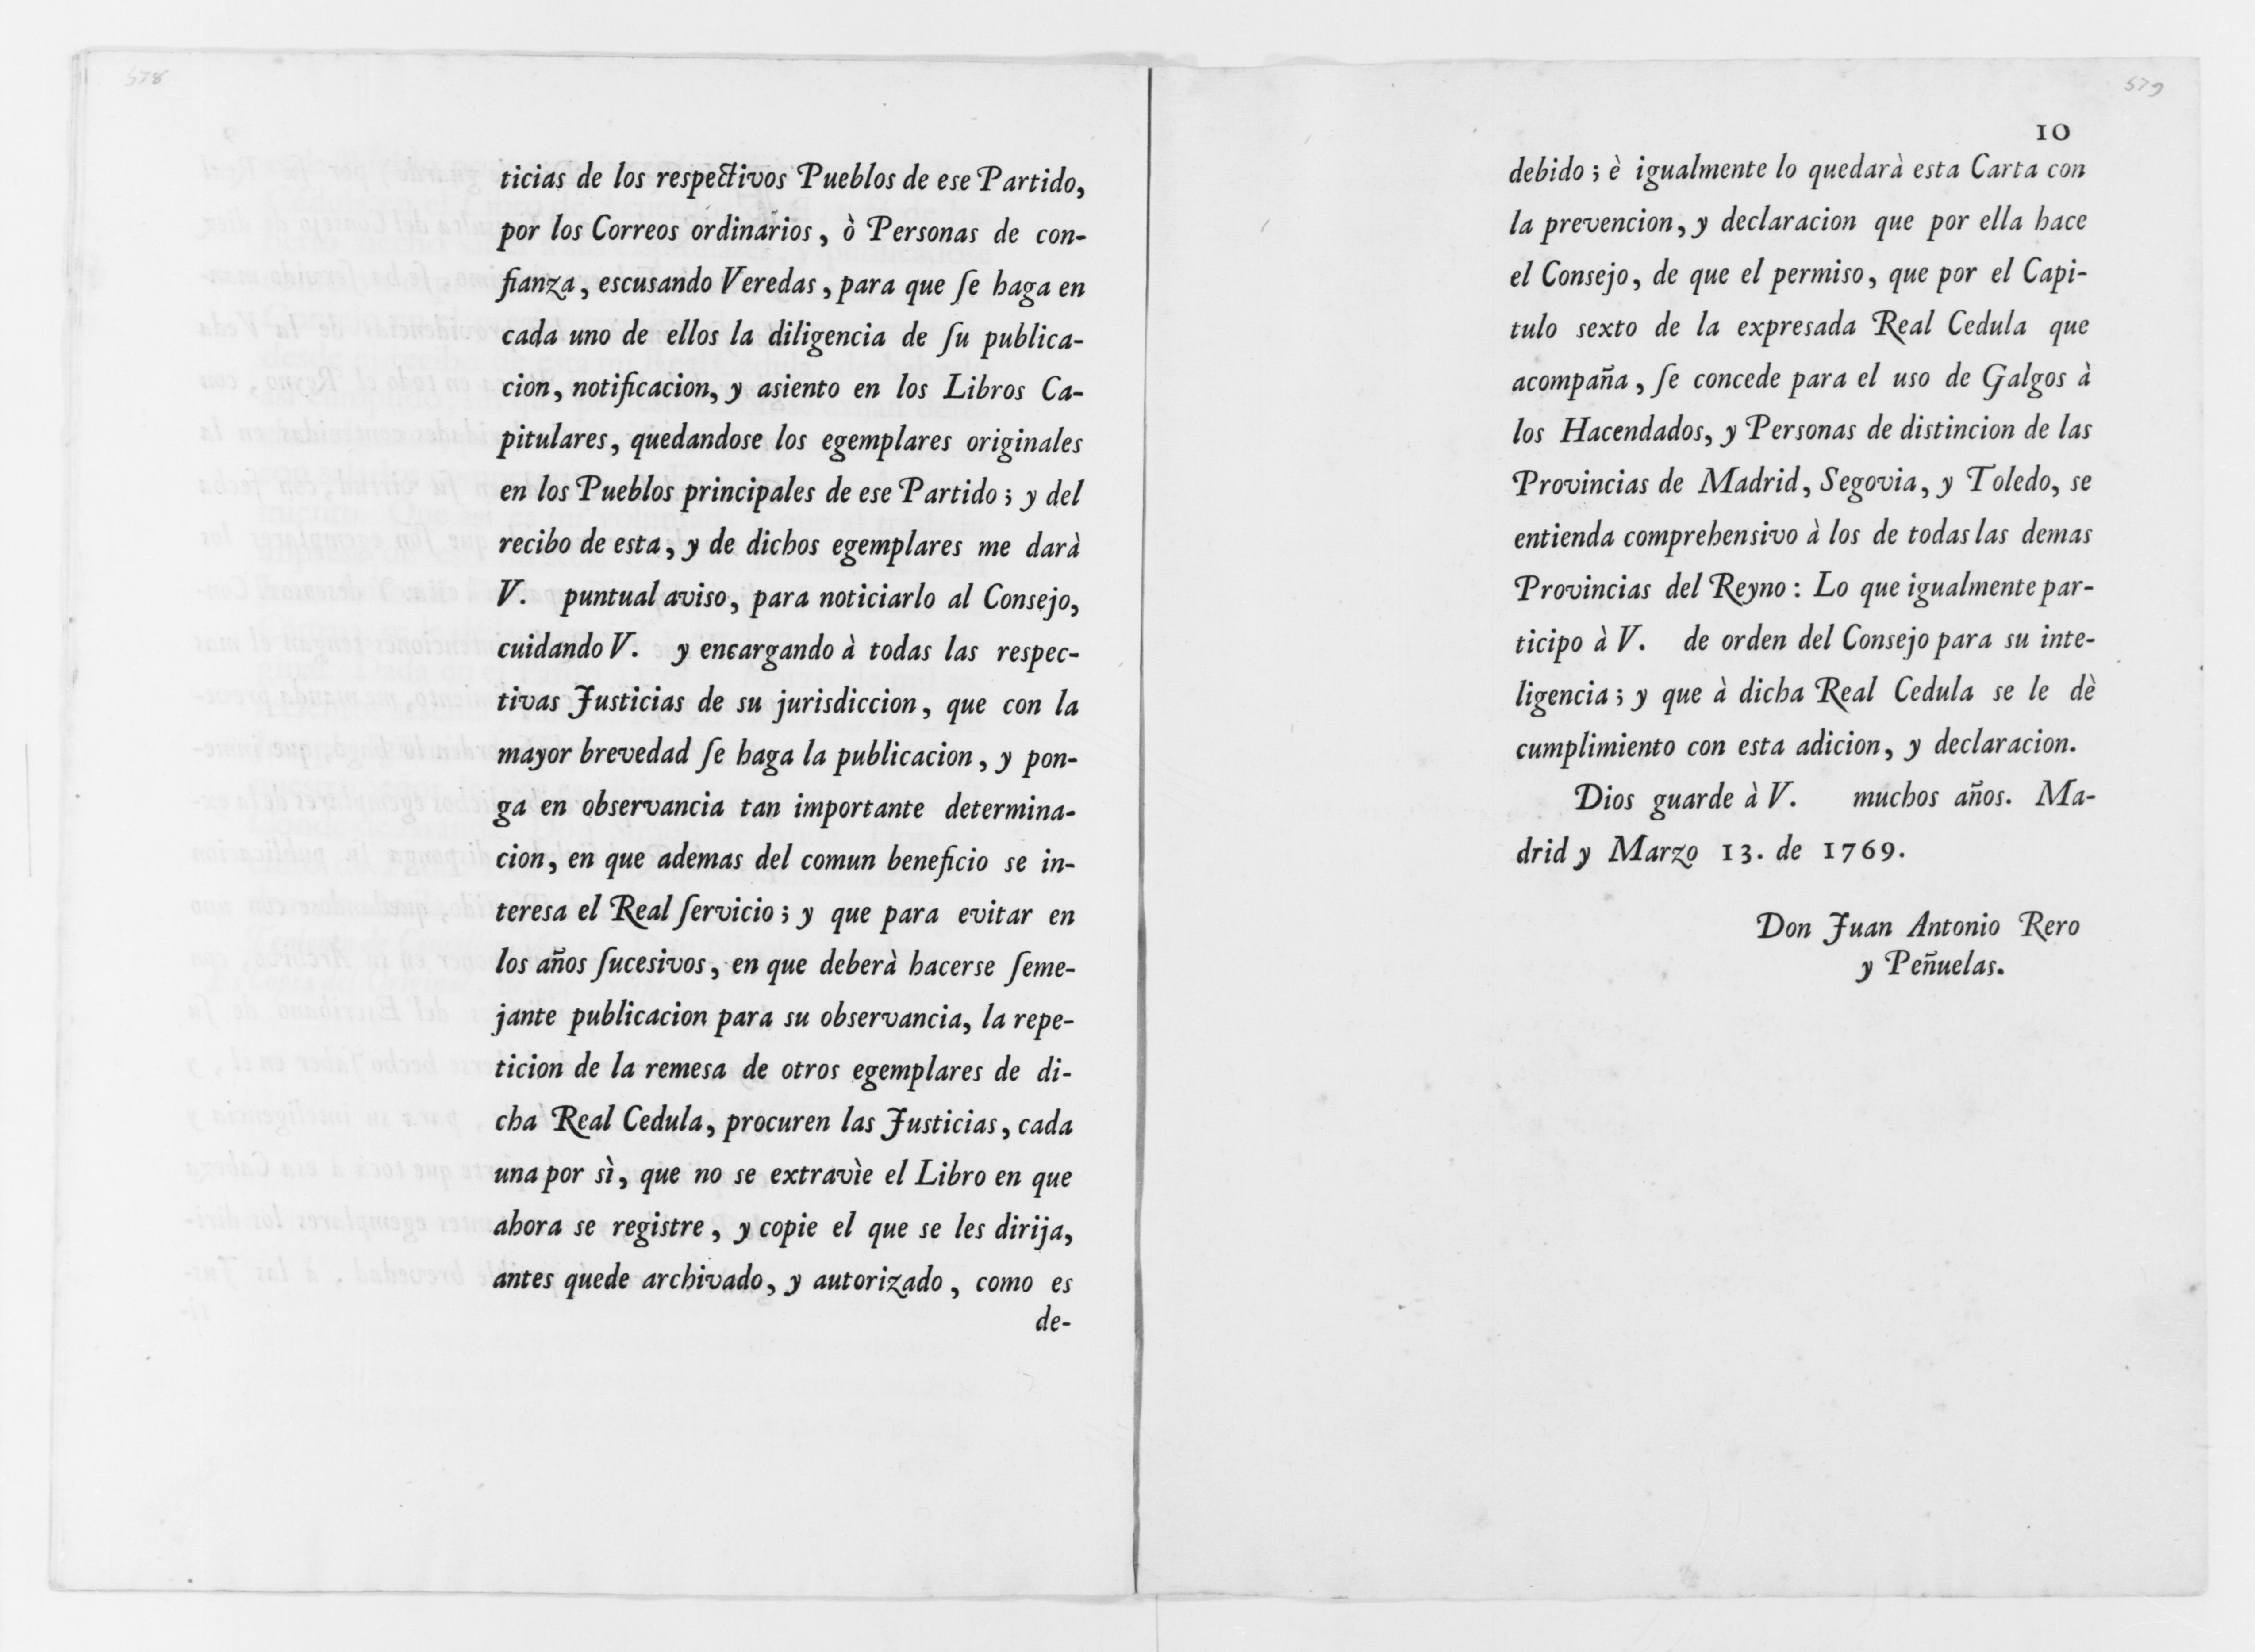 578
ticias de los respectivos Pueblos de ese Partido,
por los Correos ordinarios, ò Personas de con-
fianza, escusando Veredas, para que ſe haga en
cada uno de ellos la diligencia de ſu publica-
cion, notificacion, y asiento en los Libros Ca-
pitulares, quedandose los egemplares originales
en los Pueblos principales de ese Partido; y del
recibo de esta, y de dichos egemplares me darà
V. puntual aviso, para noticiarlo al Consejo,
cuidando V. y encargando à todas las respec-
tivas Justicias de su jurisdiccion, que con la
mayor brevedad ſe haga la publicacion, y pon-
ga en observancia tan importante determina-
cion, en que ademas del comun beneficio se in-
teresa el Real ſervicio; y que para evitar en
los años ſucesivos, en que deberà hacerse ſeme-
jante publicacion para su observancia, la repe-
ticion de la remesa de otros egemplares de di-
cha Real Cedula, procuren las Justicias, cada
una por sì, que no se extravìe el Libro en que
ahora se registre, y copie el que se les dirija,
antes quede archivado, y autorizado, como es
de-
579
10
debido; è igualmente lo quedarà esta Carta con
la prevencion, y declaracion que por ella hace
el Consejo, de que el permiso, que por el Capi-
tulo sexto de la expresada Real Cedula que
acompaña, ſe concede para el uso de Galgos à
los Hacendados, y Personas de distincion de las
Provincias de Madrid, Segovia, y Toledo, se
entienda comprehensivo à los de todas las demas
Provincias del Reyno: Lo que igualmente par-
ticipo à V. de orden del Consejo para su inte-
ligencia; y que à dicha Real Cedula se le dè
cumplimiento con esta adicion, y declaracion.
Dios guarde à V. muchos años. Ma-
drid y Marzo 13. de 1769.
Don Juan Antonio Rero
y Peñuelas.